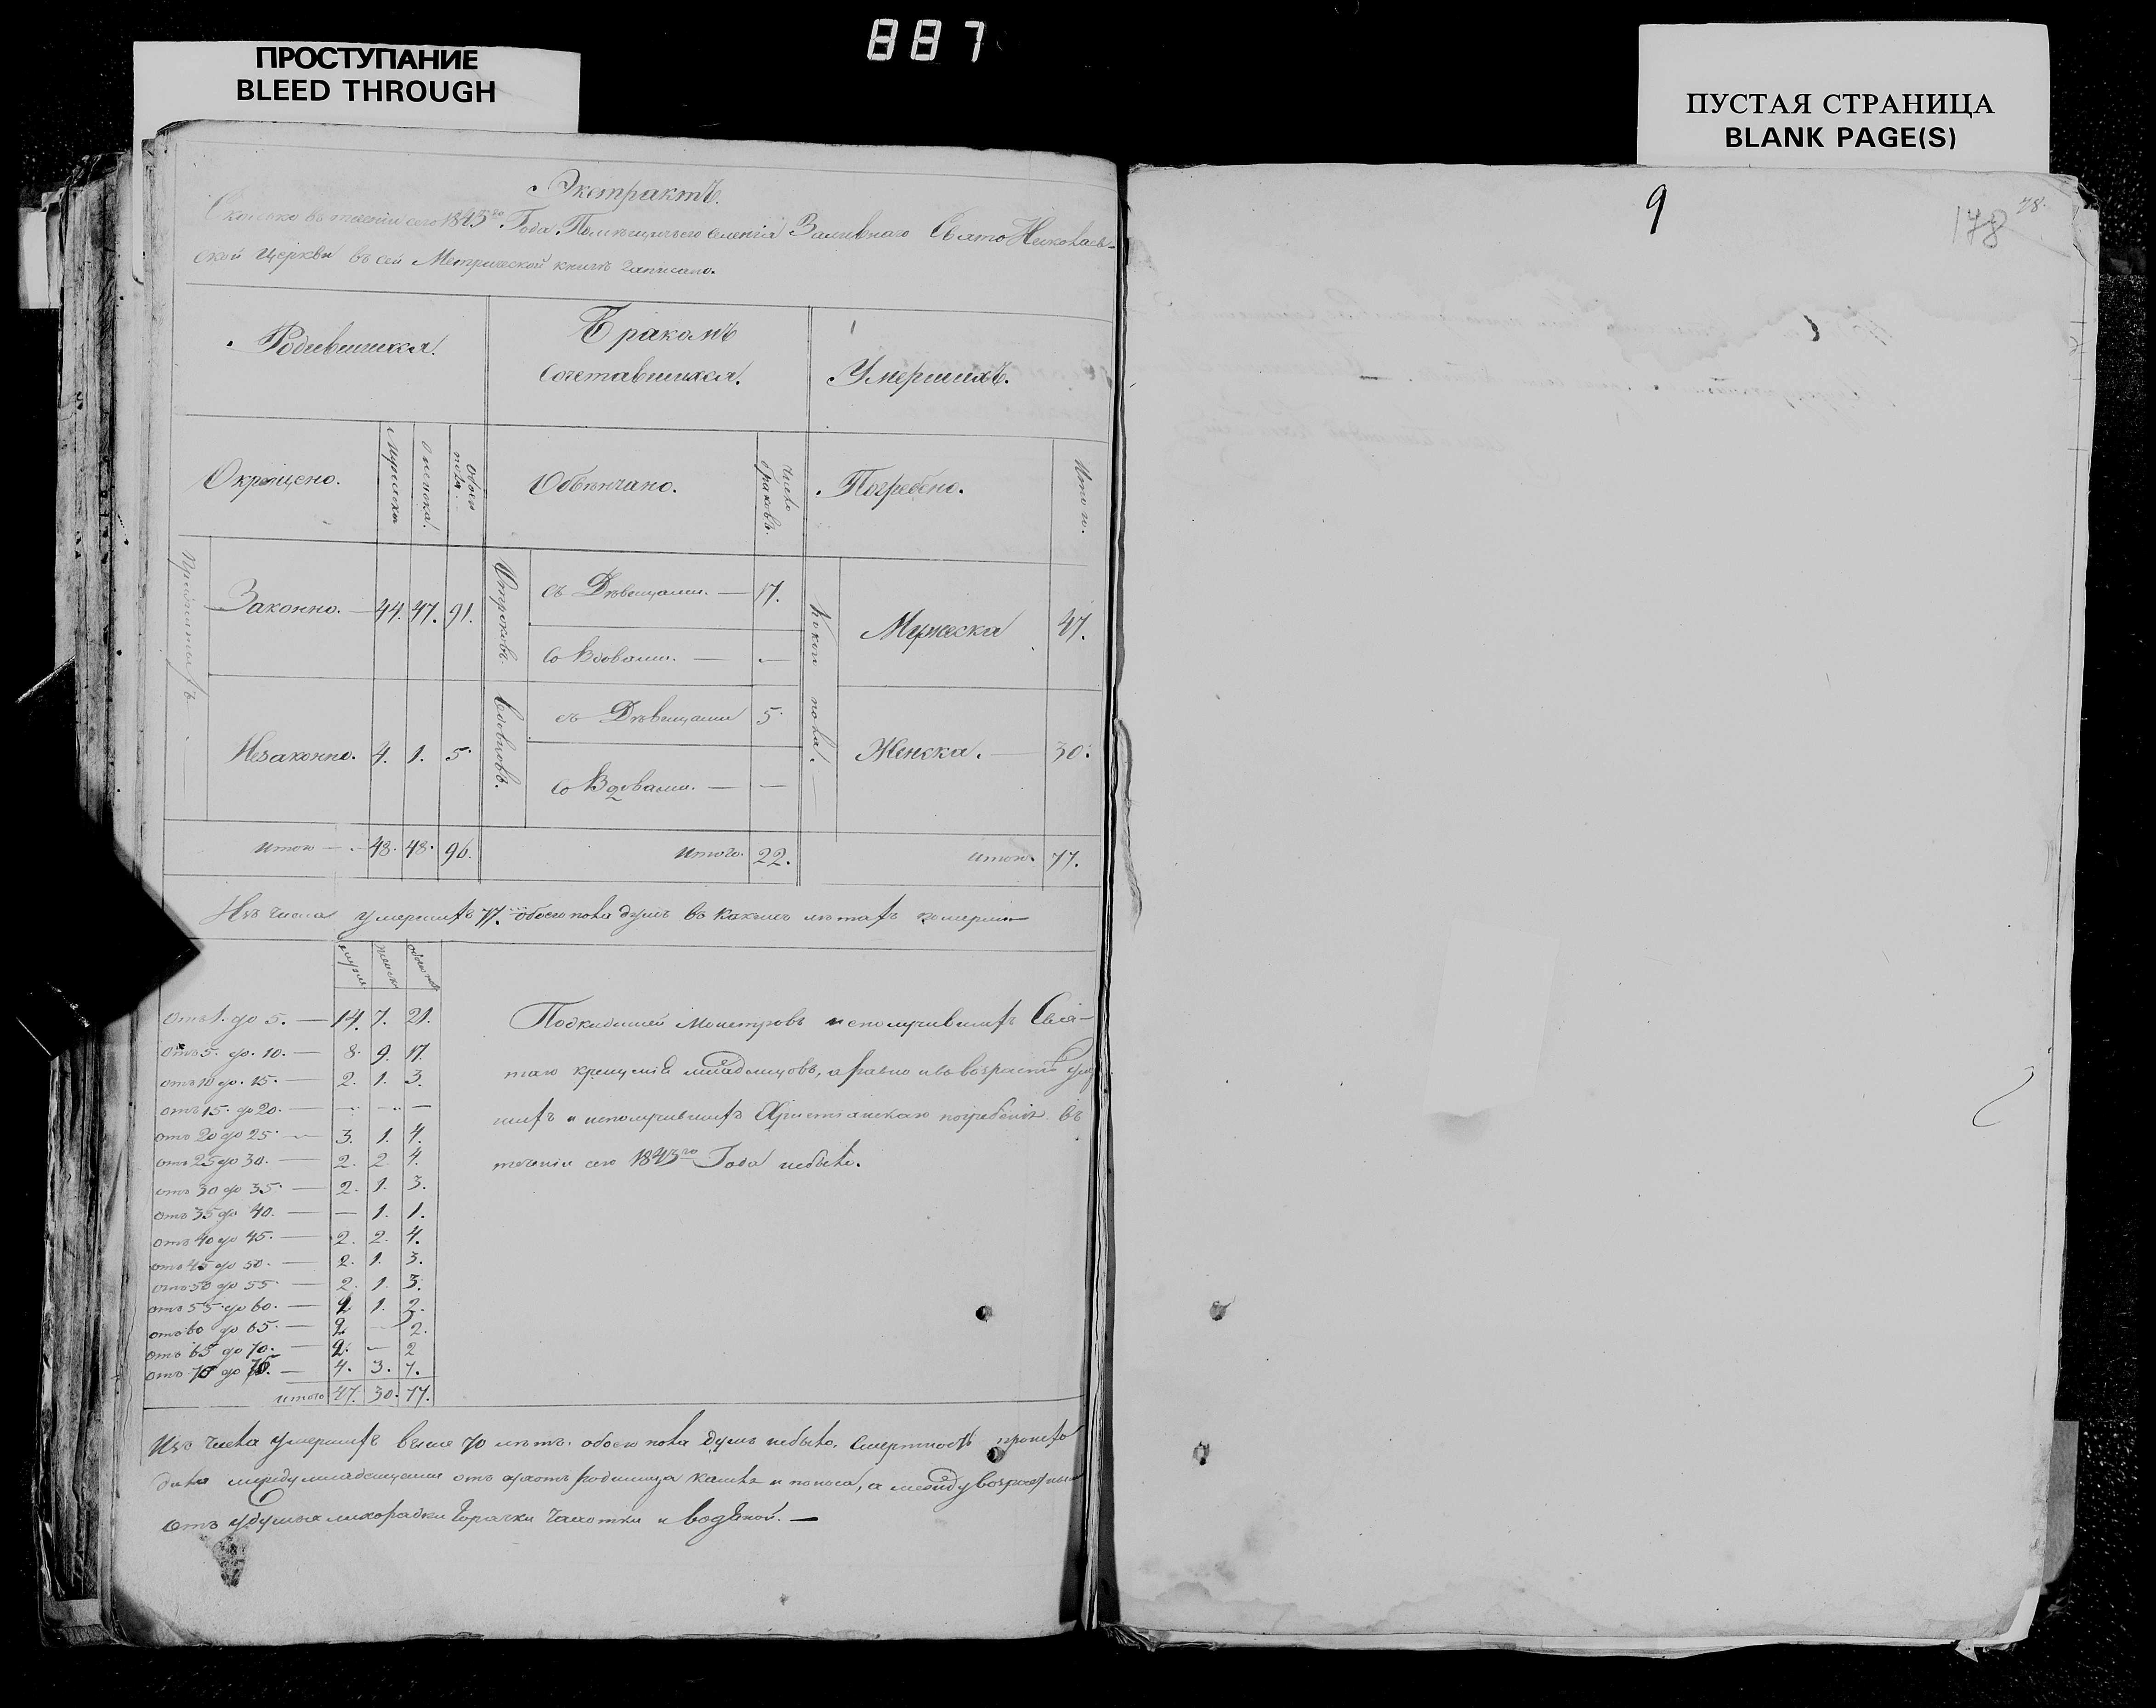 887
ПРОСТУПАНИЕ
BLEED THROUGH
ПУСТАЯ СТРАНИЦА
BLANK PAGE(S)
Экстрактъ.
Сколько въ теченіи сего 1843го Года Помѣщичьего Селенія Заливнаго Свято Николаев-
ской Церкви въ сей Метрической книгѣ Записано.
Родившихся. Бракомъ Сочетавшихся. Умершихъ.
Окрещено. Мужеска Женска. Обоего пола. Обвѣнчано. Число браковъ. Погребено. Итого.
Законно. — 44. 47. 91. Отроковъ. съ Дѣвицами. — 17. Мужеска 47.
со Вдовами. — —
Незаконно. 4. 1. 5. Вдовцовъ. съ Дѣвицами 5. Женска. — 30.
со Вдовами. — —
итого — 48. 48. 96. итого. 22. итого. 77.
Изъ числа умершихъ 77. обоего пола душъ въ какихъ лѣтахъ померли
мужс. женск. обоего
Отъ 1. до 5. — 14. 7. 21.
Отъ 5. до 10. — 8. 9. 17.
отъ 10 до 15. — 2. 1. 3.
отъ 15. до 20. — — — —
отъ 20 до 25. — 3. 1. 4.
отъ 25 до 30. — 2. 2. 4.
отъ 30 до 35. — 2. 1. 3.
отъ 35 до 40. — — 1. 1.
отъ 40 до 45. — 2. 2. 4.
отъ 45 до 50. — 2. 1. 3.
отъ 50 до 55. — 2. 1. 3.
отъ 55. до 60. — 1. 2.
отъ 60 до 65. — 2 — 2.
отъ 65 до 70. — 2. — 2
отъ 70 до — 4. 3. 7.
итого 47. 30. 77.
Подкидышей Монстровъ и неполучившихъ Свя-
таго крещенія младенцовъ, а равно и въ возрастѣ
шихъ и неполучившихъ Христианскаго погребенія въ
теченіи сего 1843го Года небыло.
Изъ числа умершихъ выше 70 лѣтъ обоего пола душъ небыло. Смертность происхо
дила между младенцами отъ родимца кашля и поноса, а между возрастными
отъ удушья лихорадки Горячки Чахотки и водяной. —
9
178
78.